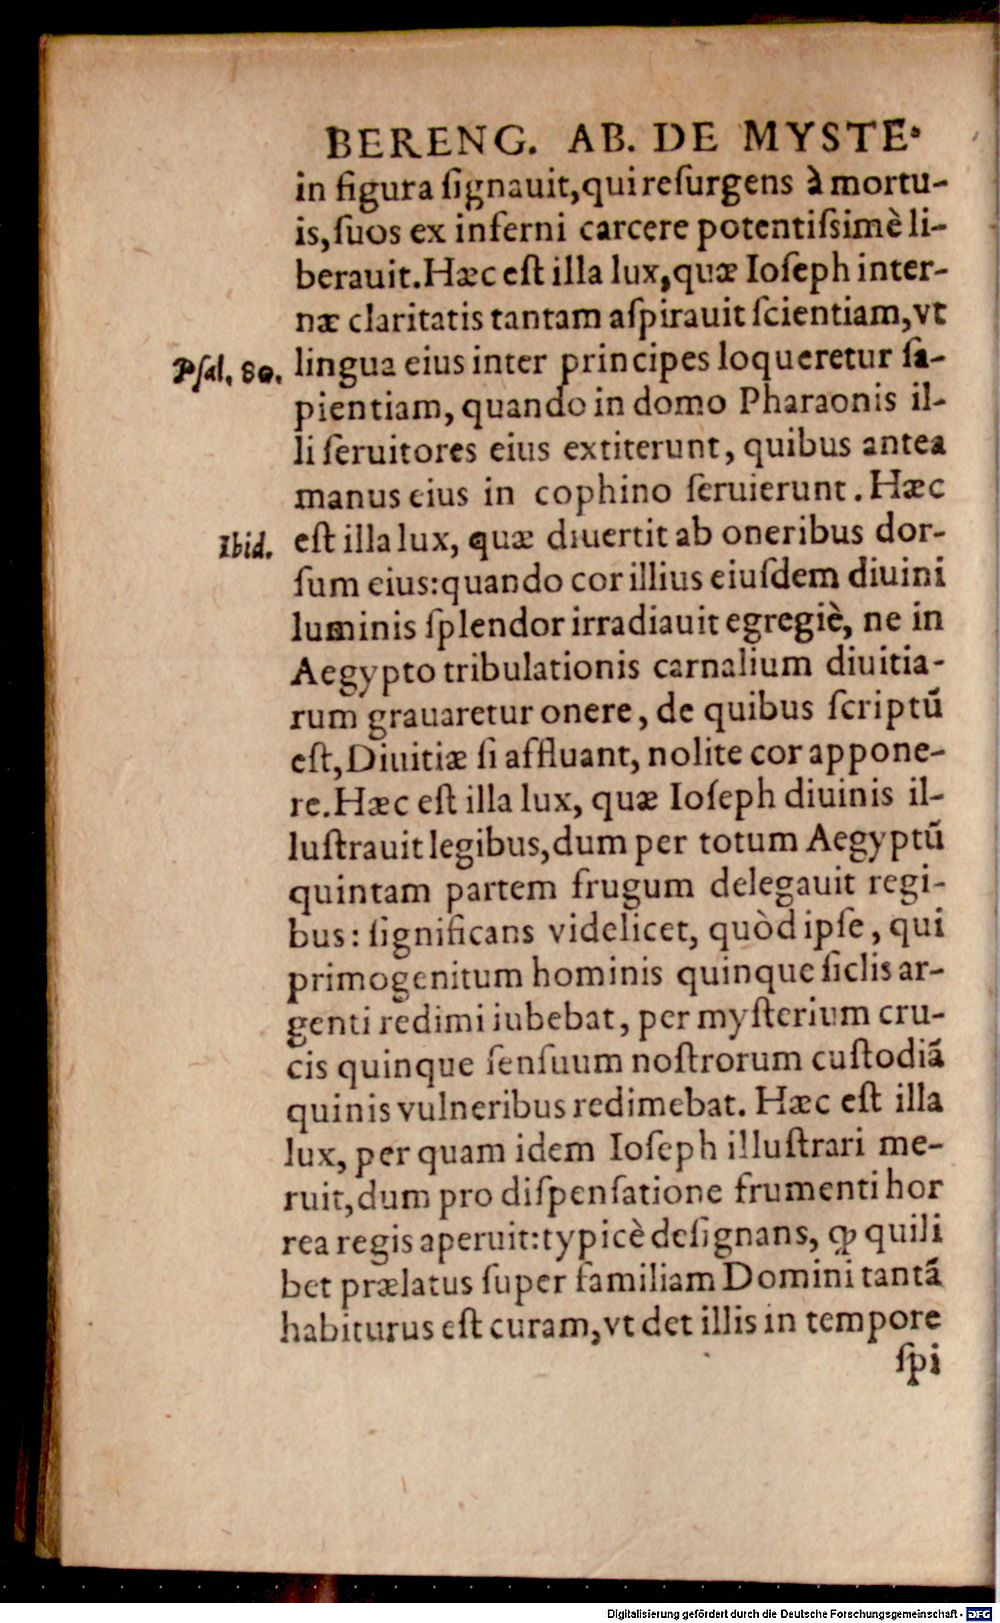 BERENG. AB. DE MYSTE-
in figura ſignauit, qui reſurgens à mortu-
is, ſuos ex inferni carcere potentiſsimè li-
berauit. Hæc eſt illa lux, quæ Ioſeph inter-
næ claritatis tantam aſpirauit ſcientiam, vt
Pſal. 80. lingua eius inter principes loqueretur ſa-
pientiam, quando in domo Pharaonis il-
li ſeruitores eius extiterunt, quibus antea
manus eius in cophino ſeruierunt. Hæc
Ibid. eſt illa lux, quæ diuertit ab oneribus dor-
ſum eius: quando cor illius eiuſdem diuini
luminis ſplendor irradiauit egregiè, ne in
Aegypto tribulationis carnalium diuitia-
rum grauaretur onere, de quibus ſcriptū
eſt, Diuitiæ ſi affluant, nolite cor appone-
re. Hæc eſt illa lux, quæ Ioſeph diuinis il-
luſtrauit legibus, dum per totum Aegyptū
quintam partem frugum delegauit regi-
bus: ſignificans videlicet, quòd ipſe, qui
primogenitum hominis quinque ſiclis ar-
genti redimi iubebat, per myſterium cru-
cis quinque ſenſuum noſtrorum cuſtodiā
quinis vulneribus redimebat. Hæc eſt illa
lux, per quam idem Ioſeph illuſtrari me-
ruit, dum pro diſpenſatione frumenti hor
rea regis aperuit: typicè deſignans, ꝙ quili
bet prælatus ſuper familiam Domini tantā
habiturus eſt curam, vt det illis in tempore
ſpi
Digitalisierung gefördert durch die Deutsche Forschungsgemeinschaft - DFG